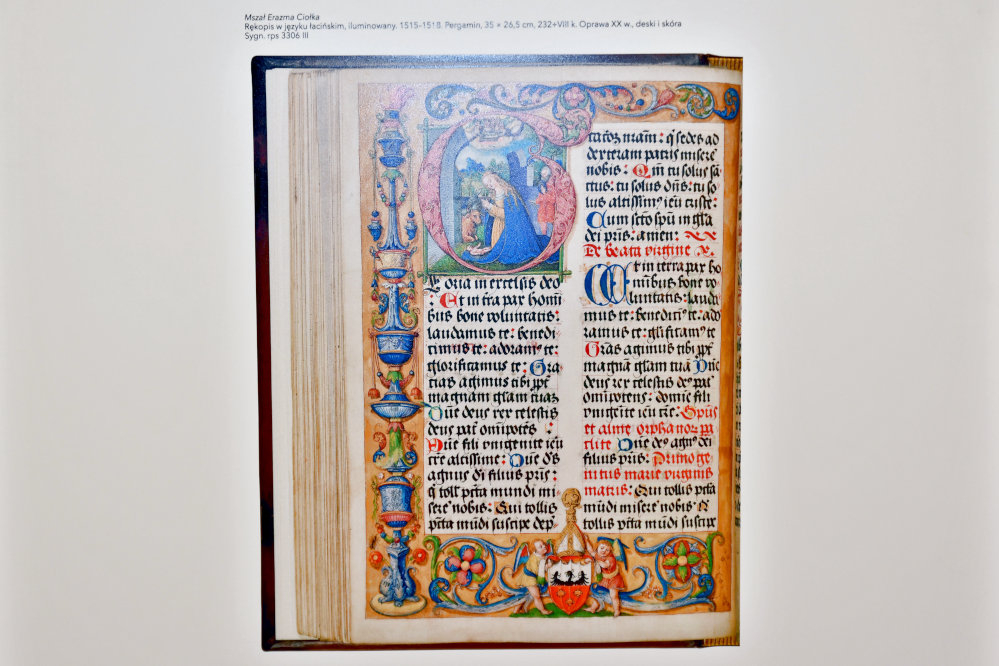 Mszał Erazma Ciołka
Rękopis w języku łacińskim, iluminowany. 1515-1518. Pergamin, 35 × 26,5 cm, 232+VIII k. Oprawa XX w., deski i skóra
Sygn. rps 3306 III
oria in excelsis deo
Et in tra pax homi
bus bone voluntatis:
laudamus te: benedi
timus te: adoram9 te:
glorificamus te: Gra
tias agimus tibi ppt
magnam gloriam tuam
Dñe deus rex celestis
deus pat omipotẽs
Dñe fili vnigenite ieu
xpe altissime: Dñe dṡ
agnus di filius pris:
q toll pcta mundi mi
sere nobis: Qui tollis
pcta mũdi suscipe dep
tacõꝫ nram: q sedes ad
dexteram patris misere
nobis: Qm tu solus sã
ctus: tu solus dñs: tu so
lus altissim9 ieu xpe:
Cum scto spũ in gla
dei pris: amen:
De beata virgine
Et in terra pax ho
minibus bone vo
luntatis: lauda
mus te: benedicim9 te: ado
ramus te: glificam9 te
Gras agimus tibi ppt
magnã glam tuã Dñe
deus rex celestis de9 pat
omipotens: domie fili
vnigenite ieu xpe: Spũs
et alme orphanoꝝ pa
raclite Dñe de9 agn9 dei
filius pris: Primoge
nitus marie virginis
matris: Qui tollis pcta
mũdi misere nobis
tollis pcta mũdi suscipe